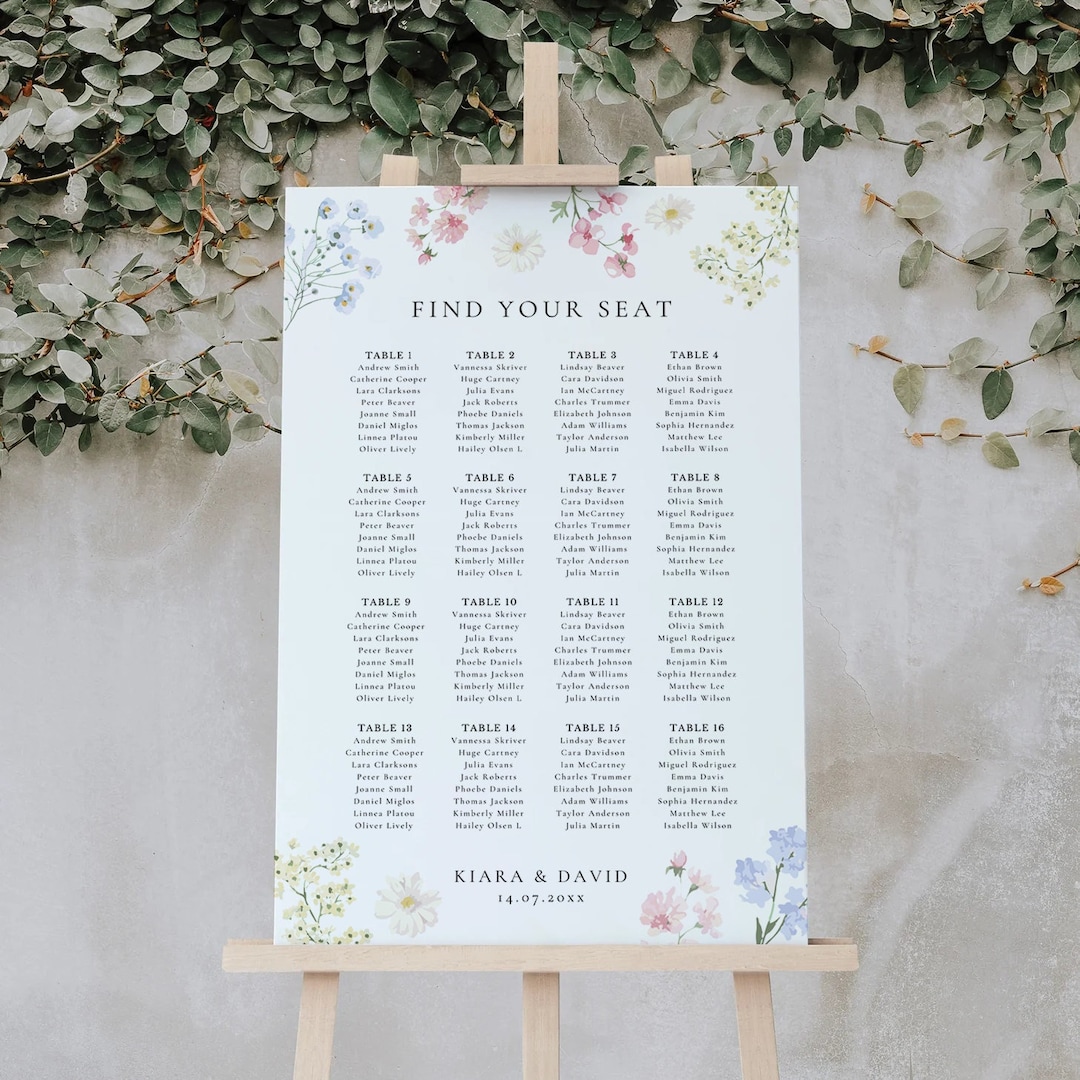 FIND YOUR SEAT
TABLE 1
Andrew Smith
Catherine Cooper
Lara Clarksons
Peter Beaver
Joanne Small
Daniel Miglos
Linnea Platou
Oliver Lively
TABLE 2
Vannessa Skriver
Huge Cartney
Julia Evans
Jack Roberts
Phoebe Daniels
Thomas Jackson
Kimberly Miller
Hailey Olsen L
TABLE 3
Lindsay Beaver
Cara Davidson
Ian McCartney
Charles Trummer
Elizabeth Johnson
Adam Williams
Taylor Anderson
Julia Martin
TABLE 4
Ethan Brown
Olivia Smith
Miguel Rodriguez
Emma Davis
Benjamin Kim
Sophia Hernandez
Matthew Lee
Isabella Wilson
TABLE 5
Andrew Smith
Catherine Cooper
Lara Clarksons
Peter Beaver
Joanne Small
Daniel Miglos
Linnea Platou
Oliver Lively
TABLE 6
Vannessa Skriver
Huge Cartney
Julia Evans
Jack Roberts
Phoebe Daniels
Thomas Jackson
Kimberly Miller
Hailey Olsen L
TABLE 7
Lindsay Beaver
Cara Davidson
Ian McCartney
Charles Trummer
Elizabeth Johnson
Adam Williams
Taylor Anderson
Julia Martin
TABLE 8
Ethan Brown
Olivia Smith
Miguel Rodriguez
Emma Davis
Benjamin Kim
Sophia Hernandez
Matthew Lee
Isabella Wilson
TABLE 9
Andrew Smith
Catherine Cooper
Lara Clarksons
Peter Beaver
Joanne Small
Daniel Miglos
Linnea Platou
Oliver Lively
TABLE 10
Vannessa Skriver
Huge Cartney
Julia Evans
Jack Roberts
Phoebe Daniels
Thomas Jackson
Kimberly Miller
Hailey Olsen L
TABLE 11
Lindsay Beaver
Cara Davidson
Ian McCartney
Charles Trummer
Elizabeth Johnson
Adam Williams
Taylor Anderson
Julia Martin
TABLE 12
Ethan Brown
Olivia Smith
Miguel Rodriguez
Emma Davis
Benjamin Kim
Sophia Hernandez
Matthew Lee
Isabella Wilson
TABLE 13
Andrew Smith
Catherine Cooper
Lara Clarksons
Peter Beaver
Joanne Small
Daniel Miglos
Linnea Platou
Oliver Lively
TABLE 14
Vannessa Skriver
Huge Cartney
Julia Evans
Jack Roberts
Phoebe Daniels
Thomas Jackson
Kimberly Miller
Hailey Olsen L
TABLE 15
Lindsay Beaver
Cara Davidson
Ian McCartney
Charles Trummer
Elizabeth Johnson
Adam Williams
Taylor Anderson
Julia Martin
TABLE 16
Ethan Brown
Olivia Smith
Miguel Rodriguez
Emma Davis
Benjamin Kim
Sophia Hernandez
Matthew Lee
Isabella Wilson
KIARA & DAVID
14.07.20xx